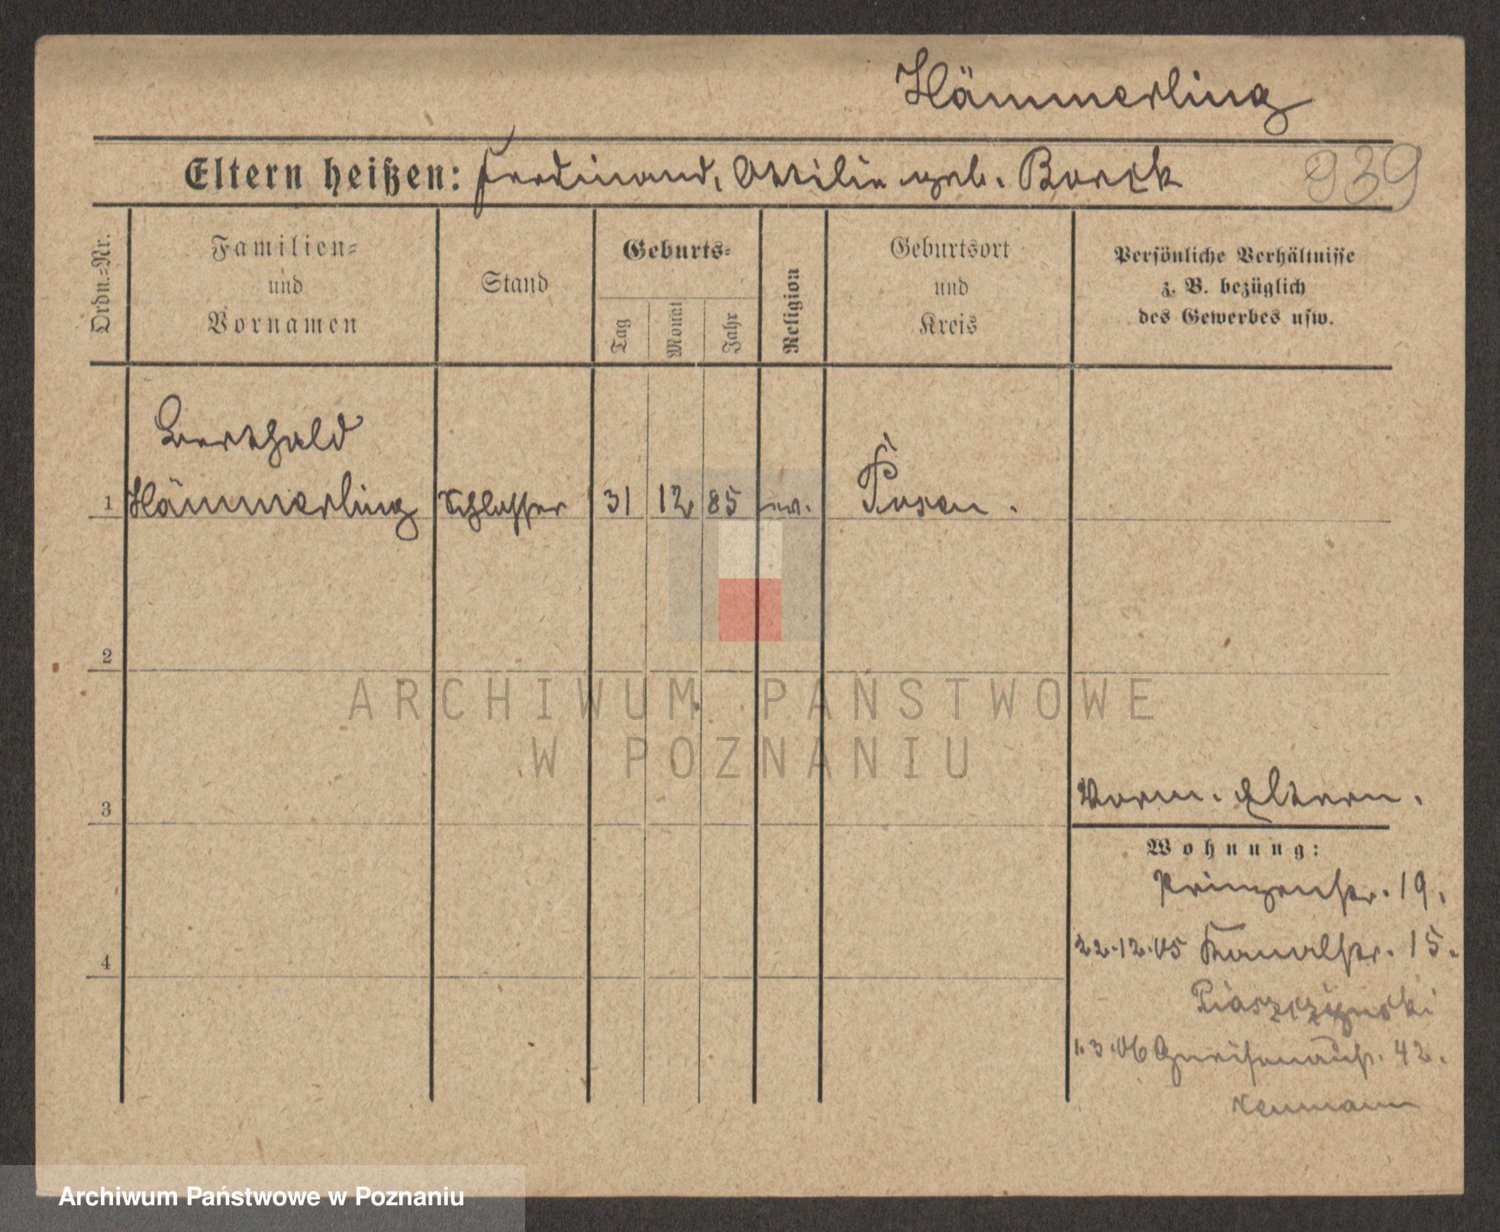 Hämmerling
Eltern heißen: Ferdinand, Ottilie geb. Borck
939
Ordn.-Nr.
Familien-
und
Vornamen
Stand
Geburts-
Tag
Monat
Jahr
Religion
Geburtsort
und
Kreis
Persönliche Verhältnisse
z. B. bezüglich
des Gewerbes usw.
Berthold
1 Hämmerling Schlosser 31 12 85 ev. Posen.
2
ARCHIWUM PAŃSTWOWE
W POZNANIU
3
Vorm. Eltern.
Wohnung:
Prinzenstr. 19.
22.12.05 Kanalstr. 15.
4
Piaszczynski
1.3.06 Gneisenaustr. 42.
Neumann
Archiwum Państwowe w Poznaniu